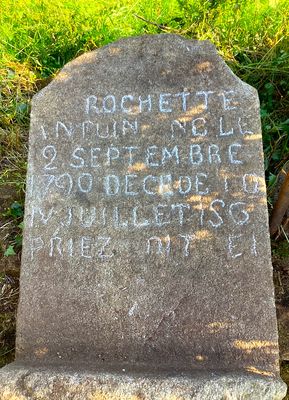 ROCHETTE
ANTOIN NE LE
2 SEPTEMBRE
1790 DECEDE LE
IV JUILLET 1
PRIEZ